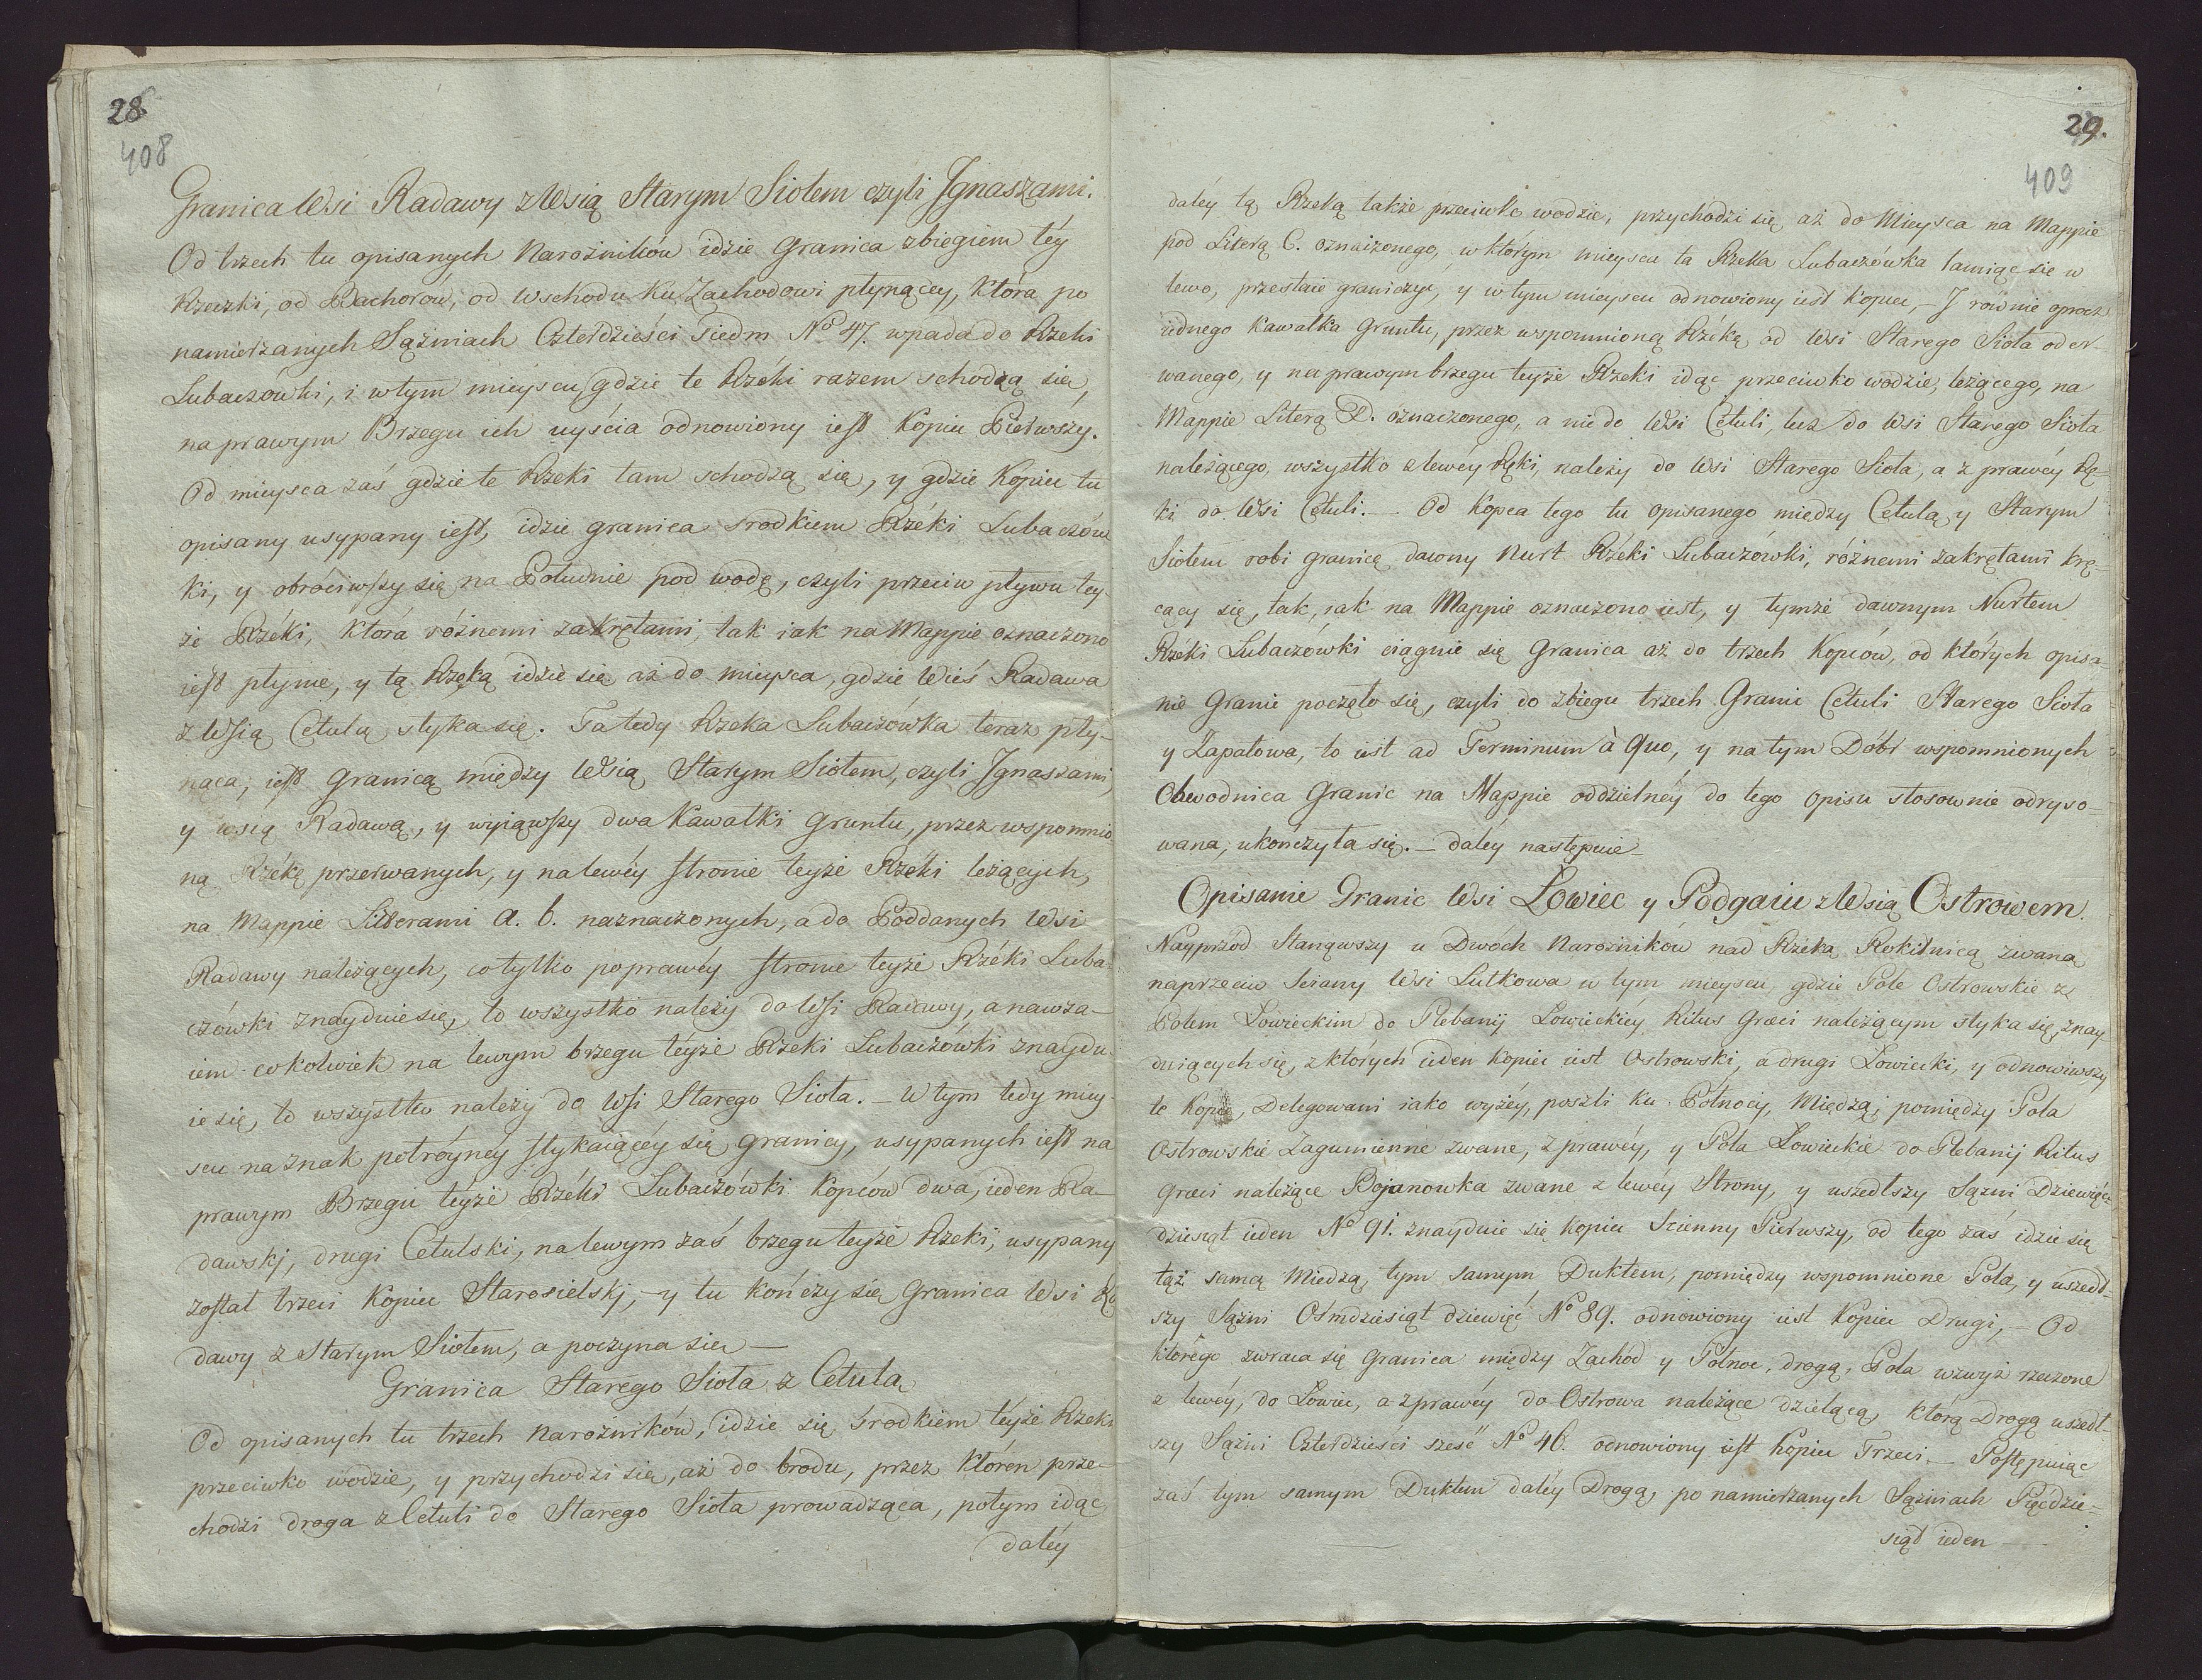 28.
408
Granica Wsi Radawy z Wsią Starym Siołem czyli Jgnaszami.
Od trzech tu opisanych Narożników idzie Granica zbiegiem téy
Rzeczki, od Bachorów, od Wschodu ku Zachodowi płynącey, która po
namierzanych Sążniach Czterdzieści Siedm No 47. wpada do Rzeki
Lubaczówki, i w tym mieyscu, gdzie te Rzéki razem schodzą się,
na prawym Brzegu ich uyścia odnowiony iest Kopiec Pierwszy.
Od mieysca zaś gdzie te Rzeki tam schodzą się, y gdzie Kopiec tu
opisany usypany iest, idzie granica srodkiem Rzéki Lubaczów
ki, y obróciwszy się na Południe pod wodę, czyli przeciw pływu tey-
że Rzéki, która różnemi zakrętami, tak iak na Mappie oznaczono
iest płynie, y tą Rzéką idzie się aż do mieysca, gdzie Wieś Radawa
z Wsią Cetulą styka się. Ta tedy Rzeka Lubaczówka teraz pły-
nąca, iest Granicą między Wsią Starym Siołem, czyli Jgnaszami,
y wsią Radawą, y wyiąwszy dwa kawałki Gruntu, przez wspomnio
ną Rzékę przerwanych, y na lewéy stronie teyże Rzéki leżących,
na Mappie Litterami a. b. naznaczonych, a do Poddanych Wsi
Radawy należących, co tylko po prawéy stronie teyże Rzéki Luba-
czówki znayduie się, to wszystko należy do Wsi Radawy, a nawza-
iem cokolwiek na lewym brzegu téyże Rzéki Lubaczówki znaydu-
ie się, to wszystko należy do Wsi Starego Sioła. – W tym tedy miey-
scu na znak potróynéy stykaiącéy się Granicy, usypanych iest na
prawym Brzegu téyże Rzéki Lubaczówki Kopców dwa, ieden Ra-
dawskj, drugi Cetulski, na lewym zaś brzegu teyże Rzeki, usypany
został trzeci Kopiec Starosielskj, – y tu kończy się Granica Wsi Ra
dawy z Starym Siołem, a poczyna się –
Granica Starego Sioła z Cetulą
Od opisanych tu trzech Narożników, idzie się środkiem téyże Rzeki
przeciwko wodzie, y przychodzi się, aż do brodu, przez któren prze-
chodzi droga z Cetuli do Starego Sioła prowadząca, potym idąc
daléy
29.
409
daléy tą Rzeką także przeciwko wodzie, przychodzi się aż do Mieysca na Mappie
pod Literą C. oznaczonego, w którym mieyscu ta Rzeka Lubaczówka łamiąc się w
lewo, przestaie graniczyć, y w tym mieyscu odnowiony iest Kopiec, – J rownie oprocz
iednego Kawałka Gruntu, przez wspomnioną Rzékę od Wsi Starego Sioła oder-
wanego, y na prawym brzegu teyże Rzeki idąc przeciwko wodzie, leżącego, na
Mappie Literą D. oznaczonego, a nie do Wsi Cetuli, lecz do Wsi Starego Sioła
należącego, wszystko z lewéy Ręki, należy do Wsi Starego Sioła, a z prawéy Rę-
ki do Wsi Cetuli. – Od Kopca tego tu opisanego między Cetulą y Starym
Siołem robi granicę dawny Nurt Rzéki Lubaczówki, różnemi zakrętami krę-
cący się, tak, iak na Mappie oznaczono iest, y tymże dawnym Nurtem
Rzéki Lubaczówki ciągnie się Granica aż do trzech Kopców, od których opisa-
nie Granic poczęło się, czyli do zbiegu trzech Granic Cetuli Starego Sioła
y Zapałowa, to iest ad Terminum à Quo, y na tym Dóbr wspomnionych
Obwodnica Granic na Mappie oddzielnéy do tego opisu stosownie odryso-
wana, ukończyła się. – daléy następuie –
Opisanie Granic Wsi Łowiec y Podgaiu z Wsią Ostrowem.
Nayprzód Stanąwszy u Dwóch Narożników nad Rzéką Rokitnicą zwaną
naprzeciw Sciany Wsi Lutkowa w tym mieyscu, gdzie Pole Ostrowskie z
Polem Łowieckim do Plebanij Łowieckiéy Ritus Græci należącym styka się, znay
duiących się, z których ieden kopiec iest Ostrowski, a drugi Łowiecki, y odnowiwszy
te Kopce, Delegowani iako wyżéy, poszli ku Północy, Miedzą, pomiędzy Pola
Ostrowskie Zagumienne zwane, z prawéy, y Pola Łowieckie do Plebanij Ritus
Græci należące Bojanowka zwane z lewéy Strony, y uszedłszy Sążni Dziewięć-
dziesiąt ieden No 91. znayduie się Kopiec Scienny Pierwszy, od tego zaś idzie się
tąż samą Miedzą, tym samym Duktem, pomiędzy wspomnione Pola, y uszedł-
szy Sążni Ośmdziesiąt dziewięć No 89. odnowiony iest Kopiec Drugi, – Od
którego zwraca się Granica między Zachód y Północ, drogą, Pola wzwyż rzeczone
z lewéy, do Łowiec, a z prawéy do Ostrowa należące dzielącą, którą Drogą uszedł-
szy Sążni Czterdzieści sześć No 46. odnowiony iest Kopiec Trzeci. – Postępuiąc
zaś tym samym Duktem daléy Drogą, po namierzanych Sążniach Pięćdzie-
siąt ieden –